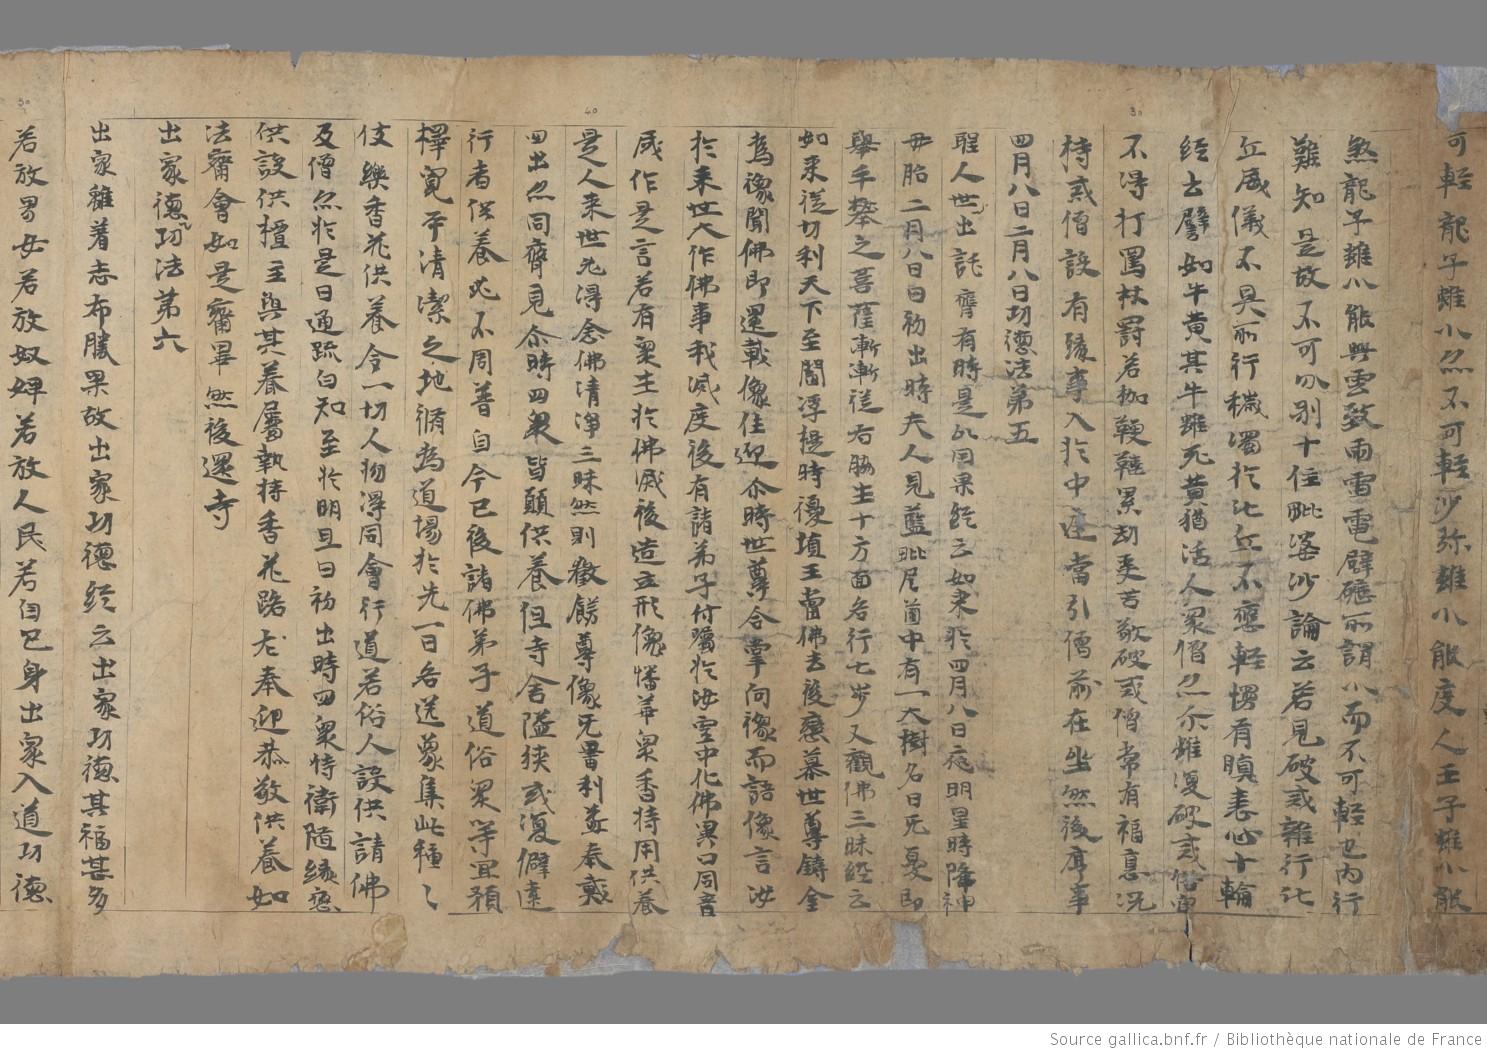 可輕龍子雖小忽不可輕沙弥雖小能度人王子雖小能
煞龍子雖小能興雲致雨雷電霹靂所謂小而不可輕也內行
難知是故不可分別十住毗婆沙論云若見破戒雜行比
丘威儀不具所行穢濁於比丘不應輕愣有瞋恚心十輪
經云譬如牛黃其牛雖死黃猶活人眾僧忽尒雖復破戒
不得打罵杖罰若枷鞕韃累劫受苦敬破戒僧常有福慧況
持戒僧設有緣事入於中座當引僧前在坐然後序事
四月八日二月八日功德法第五
聖人世出託齊有時是以因果經云如來於四月八日夜明星時降神
母胎二月八日日初出時夫人見藍毗尼薗中有一大樹名曰无憂即
舉手攀之菩薩漸漸從右脇生十方面各行七步又觀佛三昧經云
如來從切利天下至閻浮提時優填王當佛去後戀慕世尊鑄金
為像聞佛即還載像住迎尒時世尊合掌向像而語像言汝
於來世大作佛事我滅度後有諸弟子付囑於汝空中化佛異口同音
咸作是言若有眾生於佛滅後造立形像幡華眾香持用供養
是人來世必得念佛清淨三昧然則徵餝尊像无量利益奉戴
四出忽同齊見尒時四眾皆願供養但寺舍隘狹或復僻遠
行者供養必不周普自今已後諸佛弟子道俗眾等宜預
擇寬平清潔之地脩為道場於先一日各送蒙集此種〻
伎樂香花供養令一切人物得同會行道若俗人設供請佛
及僧忽於是日通疏白知至於明旦日初出時四眾侍衛隨緣
供設供檀主與其眷屬執持香花路左奉迎恭敬供養如
法齋會如是齋畢然後還寺
出家德功法第六
出家雖著志布勝果故出家功德經云出家功德其福甚多
若放男女若放奴婢若放人民若自己身出家入道功德